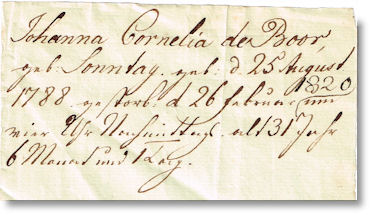 Johanna Cornelia de Boor,
geb: Sonntag. geb: d. 25 August
1788. gestorb: d 26 februar 1820 um
vier Uhr Nachmittag. alt 31 Jahr
6 Monat und 1 Tag.